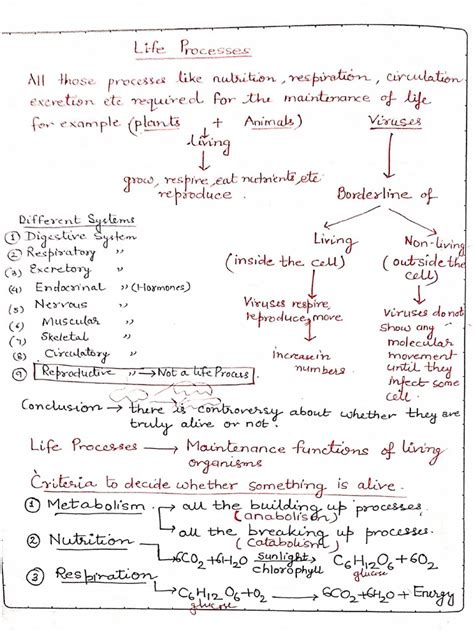 Life Processes
All those processes like nutrition, respiration, circulation
excretion etc required for the maintenance of life
for example (plants + Animals) Viruses
Living
grow, respire, eat nutrients, etc
reproduce.
Borderline of
Living
(inside the cell)
Non-living
(outside the
cell)
Viruses respire,
reproduce, move
increase in
numbers
Viruses do not
show any
molecular
movement
until they
infect some
cell.
Different Systems
(1) Digestive System
(2) Respiratory "
(3) Excretory "
(4) Endocrinal " (Hormones)
(5) Nervous "
(6) Muscular "
(7) Skeletal "
(8) Circulatory "
(9) Reproductive " → Not a life Process
Conclusion → there is controversy about whether they are
truly alive or not.
Life Processes → Maintenance functions of living
organisms
Criteria to decide whether something is alive.
(1) Metabolism → all the building up processes.
(anabolism)
→ all the breaking up processes.
(catabolism)
(2) Nutrition → 6CO2+6H2O sunlight chlorophyll C6H12O6+6O2
glucose
(3) Respiration
C6H12O6+O2 → 6CO2+6H2O + Energy
glucose